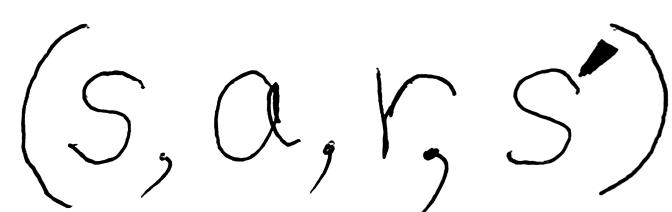 (s, a, r, s')